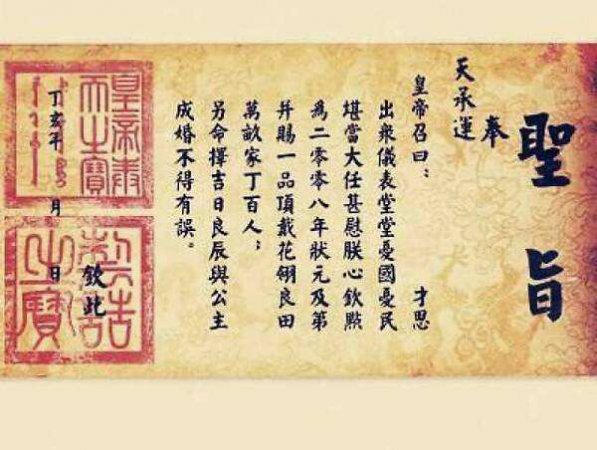 聖旨
奉
天承運
皇帝召曰：
才思
出衆儀表堂堂憂國憂民
堪當大任甚慰朕心欽點
為二零零八年狀元及第
并賜一品頂戴花翎良田
萬畝家丁百人；
另命擇吉日良辰與公主
成婚不得有誤。
欽此
丁亥年 月 日
制誥之寶